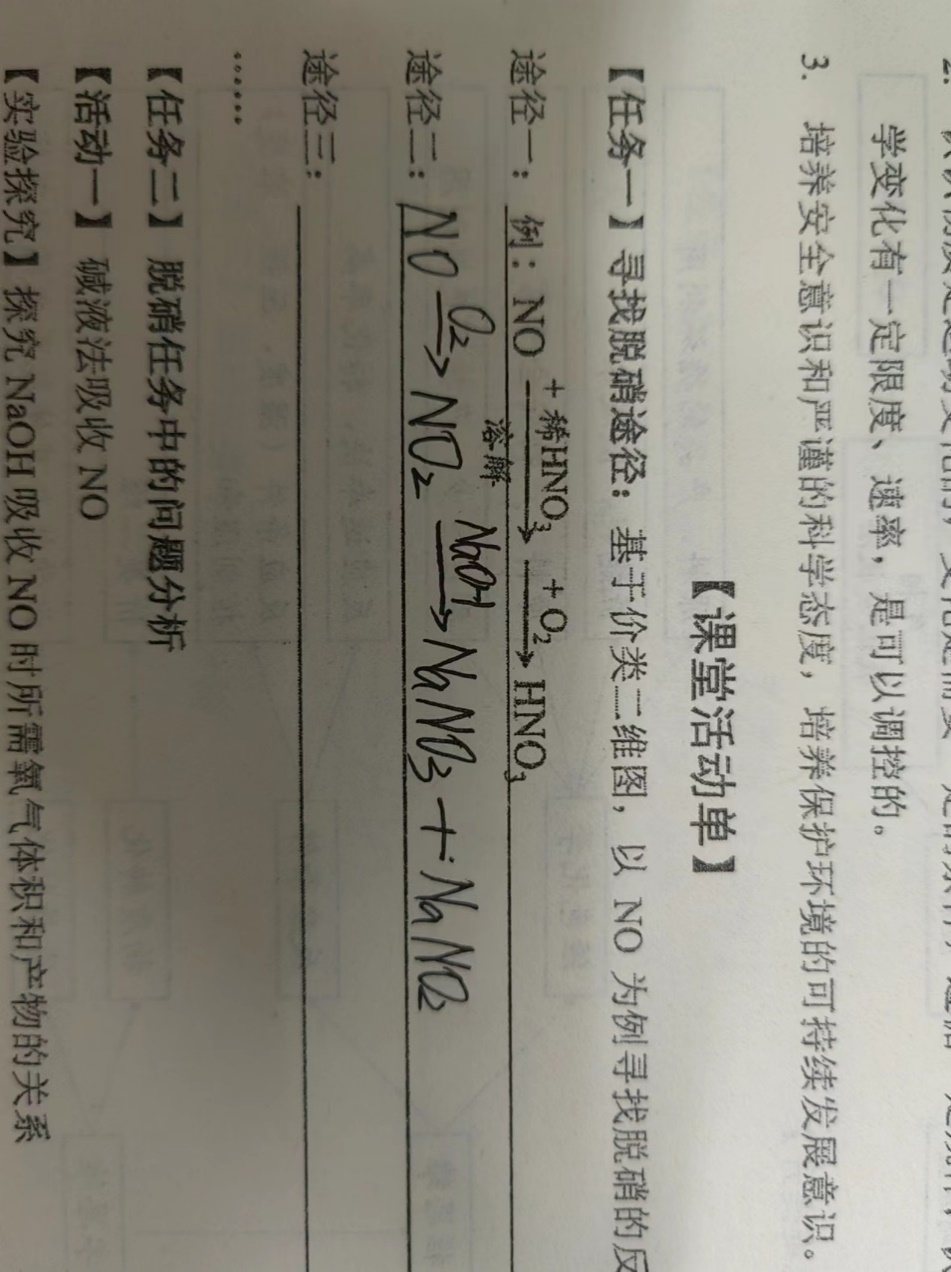 学变化有一定限度、速率，是可以调控的。
3. 培养安全意识和严谨的科学态度，培养保护环境的可持续发展意识。
【课堂活动单】
【任务一】寻找脱硝途径：基于价类二维图，以 NO 为例寻找脱硝的反
途径一：例：NO —+稀HNO₃ 溶解→ —+O₂→ HNO₃
途径二：NO —O₂→ NO₂ —NaOH→ NaNO₃ + NaNO₂
途径三：
……
【任务二】脱硝任务中的问题分析
【活动一】碱液法吸收 NO
【实验探究】探究 NaOH 吸收 NO 时所需氧气体积和产物的关系